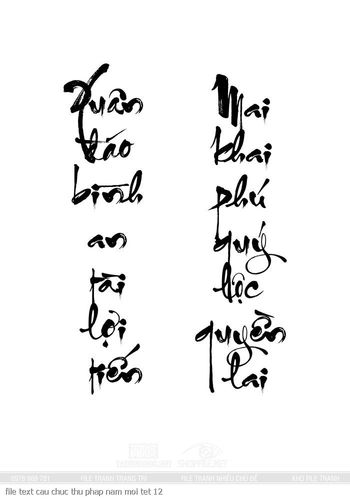 Xuân
đáo
bình
an
tài
lợi
tiến
Mai
khai
phú
quý
lộc
quyền
lai
FILE TRANH TRANG TRÍ
FILE TRANH NHIỀU CHỦ ĐỀ
KHO FILE TRANH
file text cau chuc thu phap nam moi tet 12